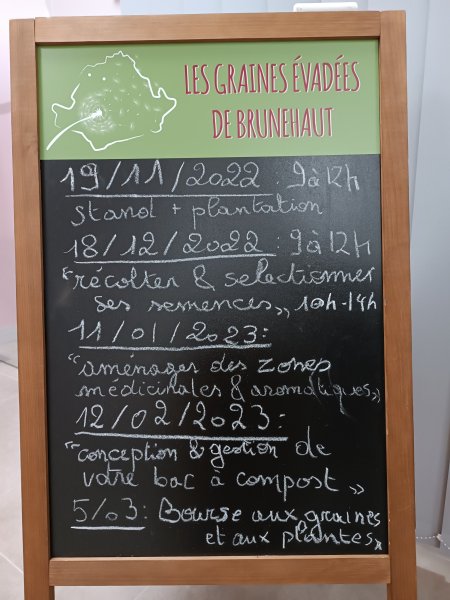 LES GRAINES ÉVADÉES
DE BRUNEHAUT
19/11/2022 : 9 à 12h
stand + plantation
18/12/2022 : 9 à 12h
"récolter & selectionner
ses semences" 10h-14h
11/01/2023 :
"aménager des zones
médicinales & aromatiques"
12/02/2023 :
"conception & gestion de
votre bac à compost"
5/03 : Bourse aux graines
et aux plantes